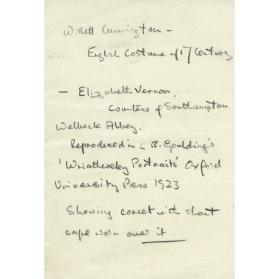 Willett Cunnington -
English Costume of 17 Century
- Elizabeth Vernon,
Countess of Southampton
Welbeck Abbey.
Reproduced in R. Goulding's
'Wriothesley Portraits' Oxford
University Press 1923
Showing corset with short
cape worn over it.